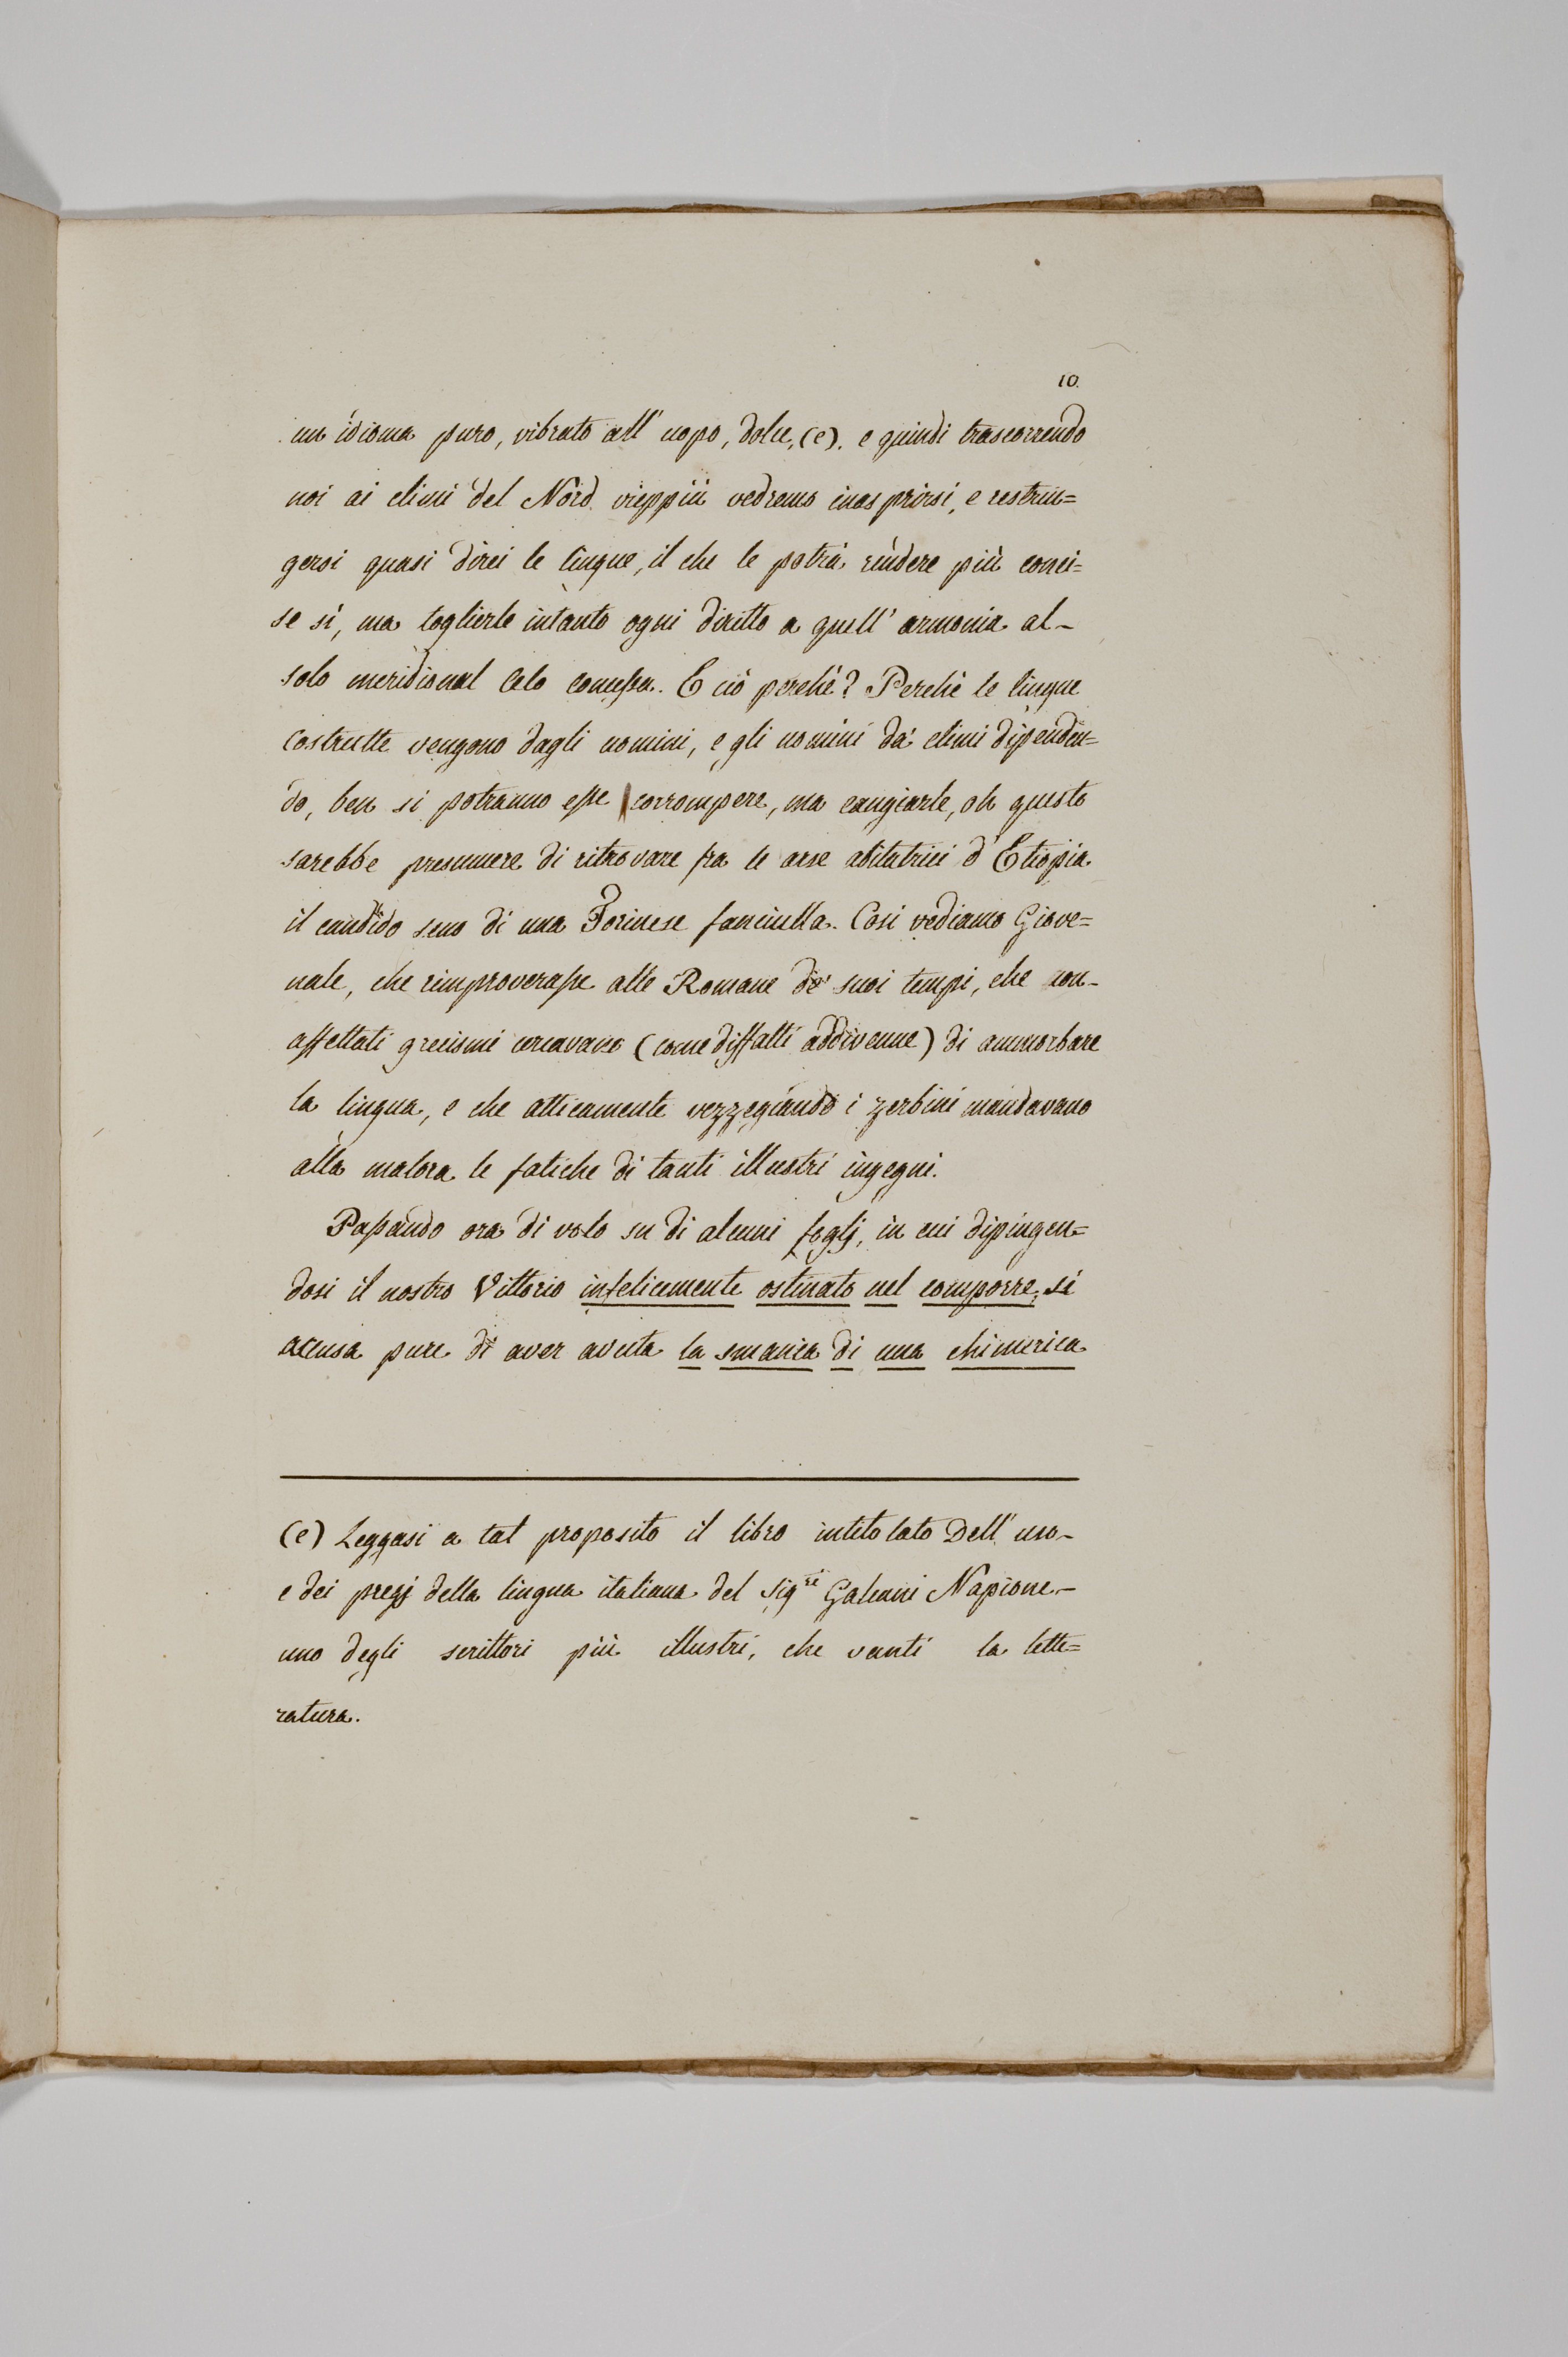 10.
un idioma puro, vibrato all' uopo, dolce, (e). e quindi trascorrendo
noi ai climi del Nord vieppiù vedremo inasprirsi, e restrin=
gersi quasi direi le lingue, il che le potrà rendere più conci=
se sì, ma toglierle intanto ogni diritto a quell' armonia al-
solo meridional Celo comessa. E ciò perchè? Perchè le lingue
costrutte vengono dagli uomini, e gli uomini da' climi dipenden=
do, ben si potranno esse corrompere, ma cangiarle, oh questo
sarebbe presumere di ritrovare fra le arse abitatrici d' Etiopia
il candido seno di una Torinese fanciulla. Così vediamo Giove=
nale, che rimproverasse alle Romane de' suoi tempi, che con-
affettati grecismi cercavano (come diffatti addivenne) di ammorbare
la lingua, e che atticamente vezzegiando i zerbini mandavano
alla malora le fatiche di tanti illustri ingegni.
Passando ora di volo su di alcuni foglj, in cui dipingen=
dosi il nostro Vittorio infelicemente ostinato nel comporre, si
accusa pure di aver avuta la smania di una chimerica
(e) Leggasi a tal proposito il libro intitolato Dell' uso-
e dei pregj della lingua italiana del Sig.re Galeani Napione-
uno degli scrittori più illustri, che vanti la lette=
ratura.